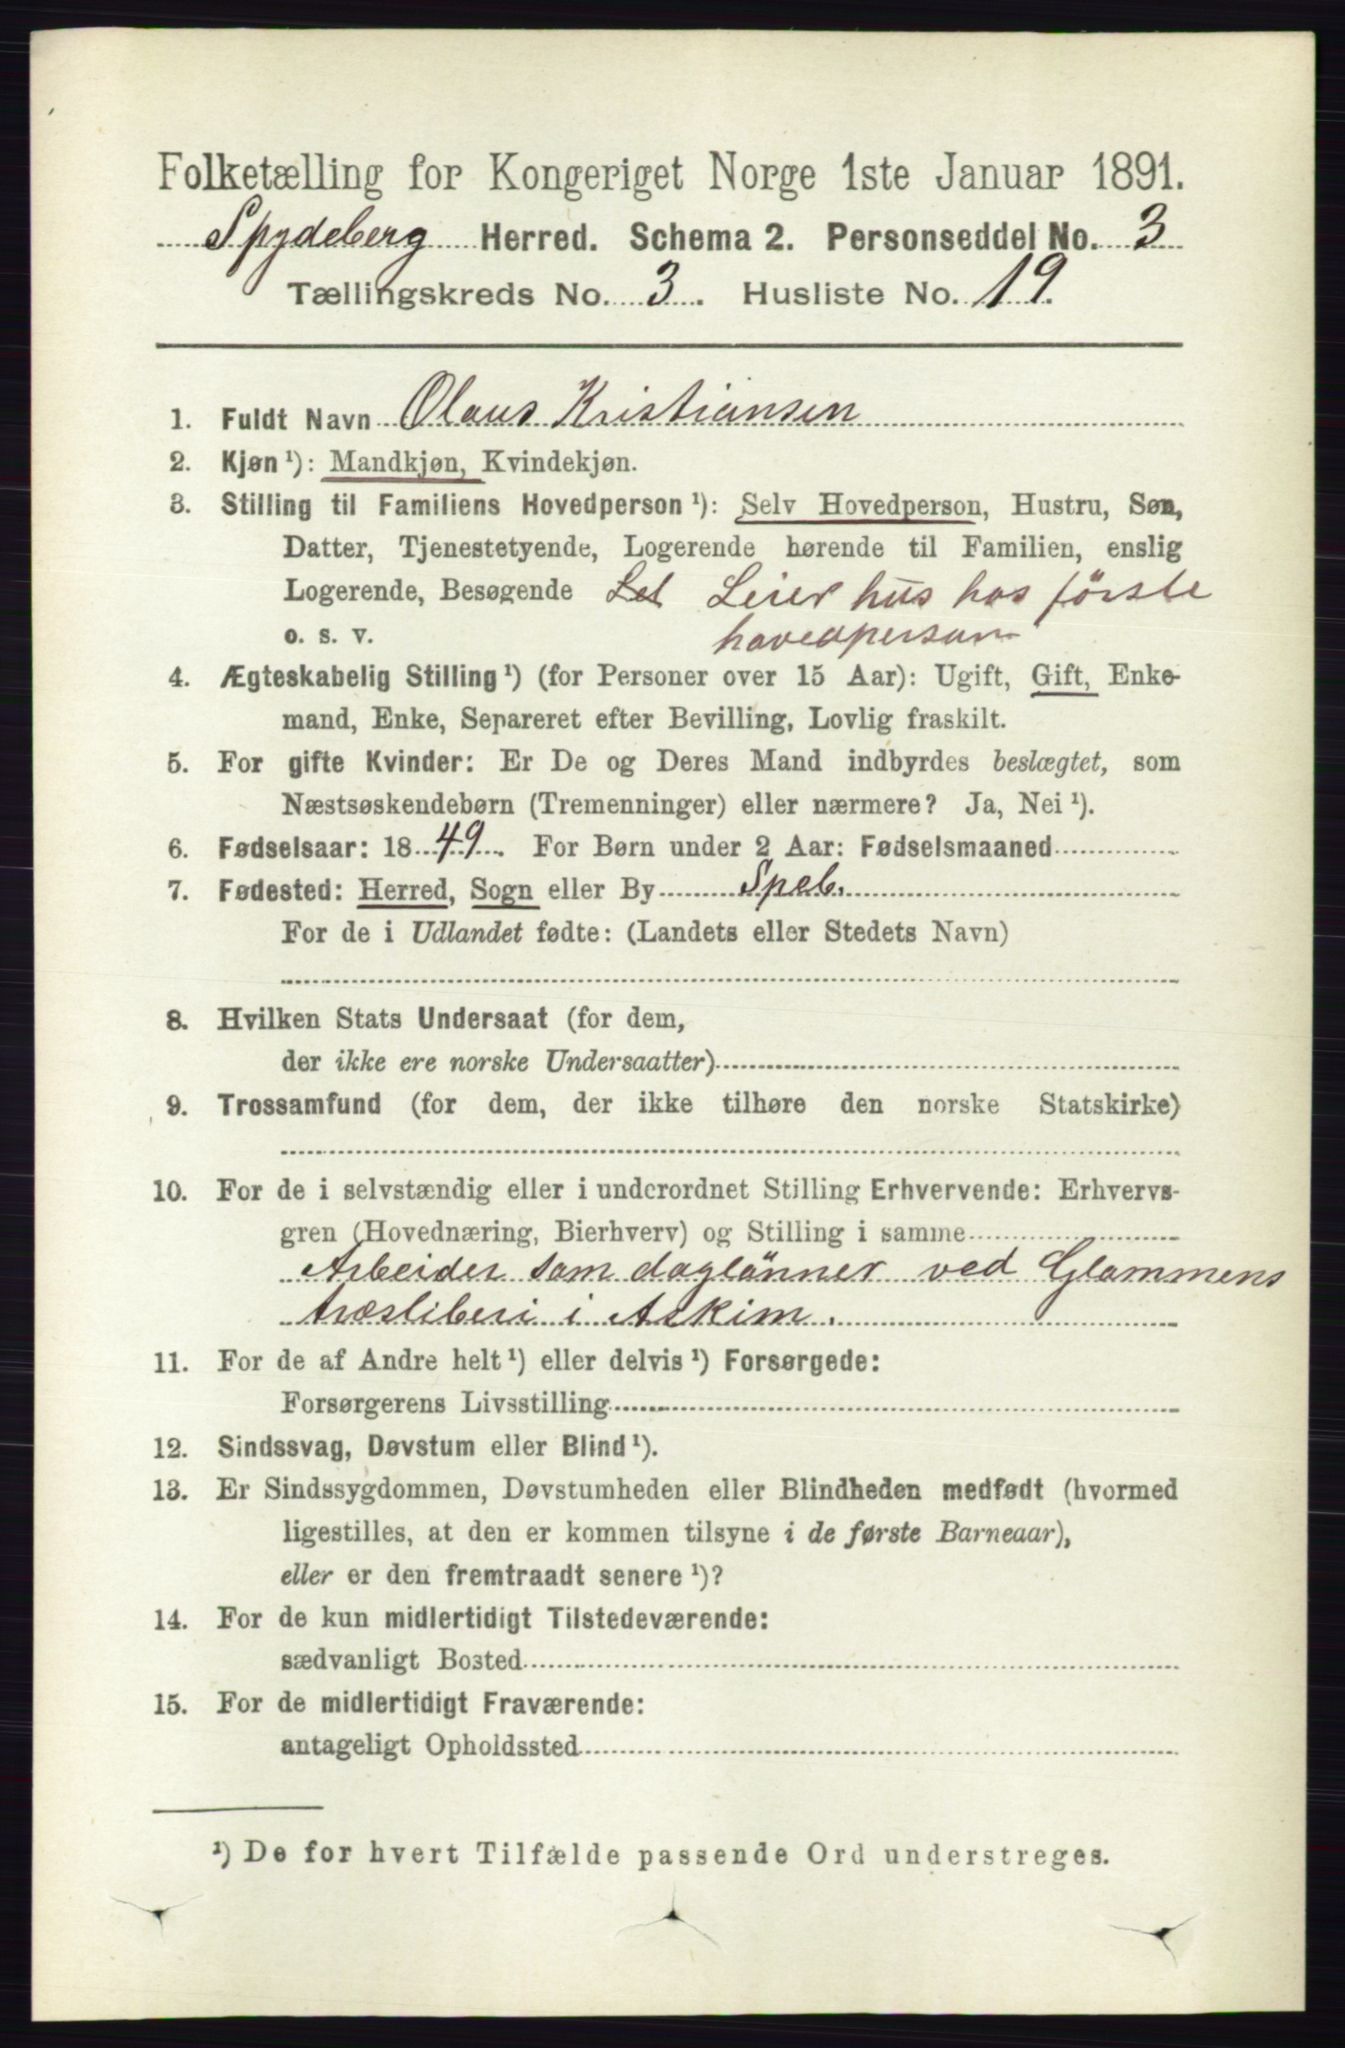 Folketælling for Kongeriget Norge 1ste Januar 1891.
Spydeberg Herred. Schema 2. Personseddel No. 3
Tællingskreds No. 3. Husliste No. 19.
1. Fuldt Navn Olaus Kristiansen
2. Kjøn ¹): Mandkjøn, Kvindekjøn.
3. Stilling til Familiens Hovedperson ¹): Selv Hovedperson, Hustru, Søn,
Datter, Tjenestetyende, Logerende hørende til Familien, enslig
Logerende, Besøgende Leier hus hos förste
o. s. v. hovedperson
4. Ægteskabelig Stilling ¹) (for Personer over 15 Aar): Ugift, Gift, Enke-
mand, Enke, Separeret efter Bevilling, Lovlig fraskilt.
5. For gifte Kvinder: Er De og Deres Mand indbyrdes beslægtet, som
Næstsøskendebørn (Tremenninger) eller nærmere? Ja, Nei ¹).
6. Fødselsaar: 1849. For Børn under 2 Aar: Fødselsmaaned
7. Fødested: Herred, Sogn eller By Speb.
For de i Udlandet fødte: (Landets eller Stedets Navn)
8. Hvilken Stats Undersaat (for dem,
der ikke ere norske Undersaatter)
9. Trossamfund (for dem, der ikke tilhøre den norske Statskirke)
10. For de i selvstændig eller i underordnet Stilling Erhvervende: Erhvervs-
gren (Hovednæring, Bierhverv) og Stilling i samme
Arbeider som daglönner ved Glommens
træsliberi i Askim.
11. For de af Andre helt ¹) eller delvis ¹) Forsørgede:
Forsørgerens Livsstilling
12. Sindssvag, Døvstum eller Blind ¹).
13. Er Sindssygdommen, Døvstumheden eller Blindheden medfødt (hvormed
ligestilles, at den er kommen tilsyne i de første Barneaar),
eller er den fremtraadt senere ¹)?
14. For de kun midlertidigt Tilstedeværende:
sædvanligt Bosted
15. For de midlertidigt Fraværende:
antageligt Opholdssted
¹) De for hvert Tilfælde passende Ord understreges.